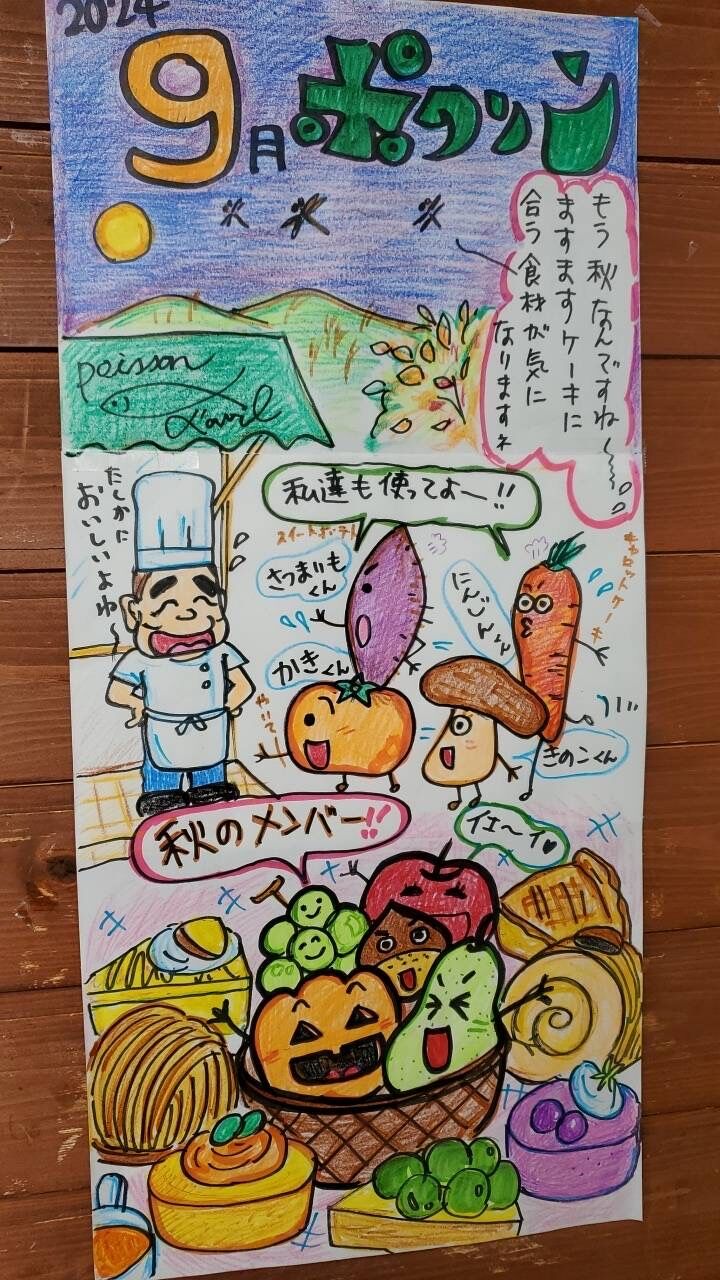 2024
9月ポワソン
もう秋なんですね〜
ますますケーキに
合う食材が気に
なりますネ
poisson
d'avril
たしかに
おいしいよね〜
私達も使ってよー!!
スイートポテト
さつまいも
くん
キャロットケーキ
にんじんくん
かきくん
きのこくん
秋のメンバー!!
イエ〜イ♥